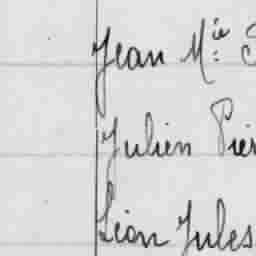 Jean M.ie
Julien Pier
Léon Jules